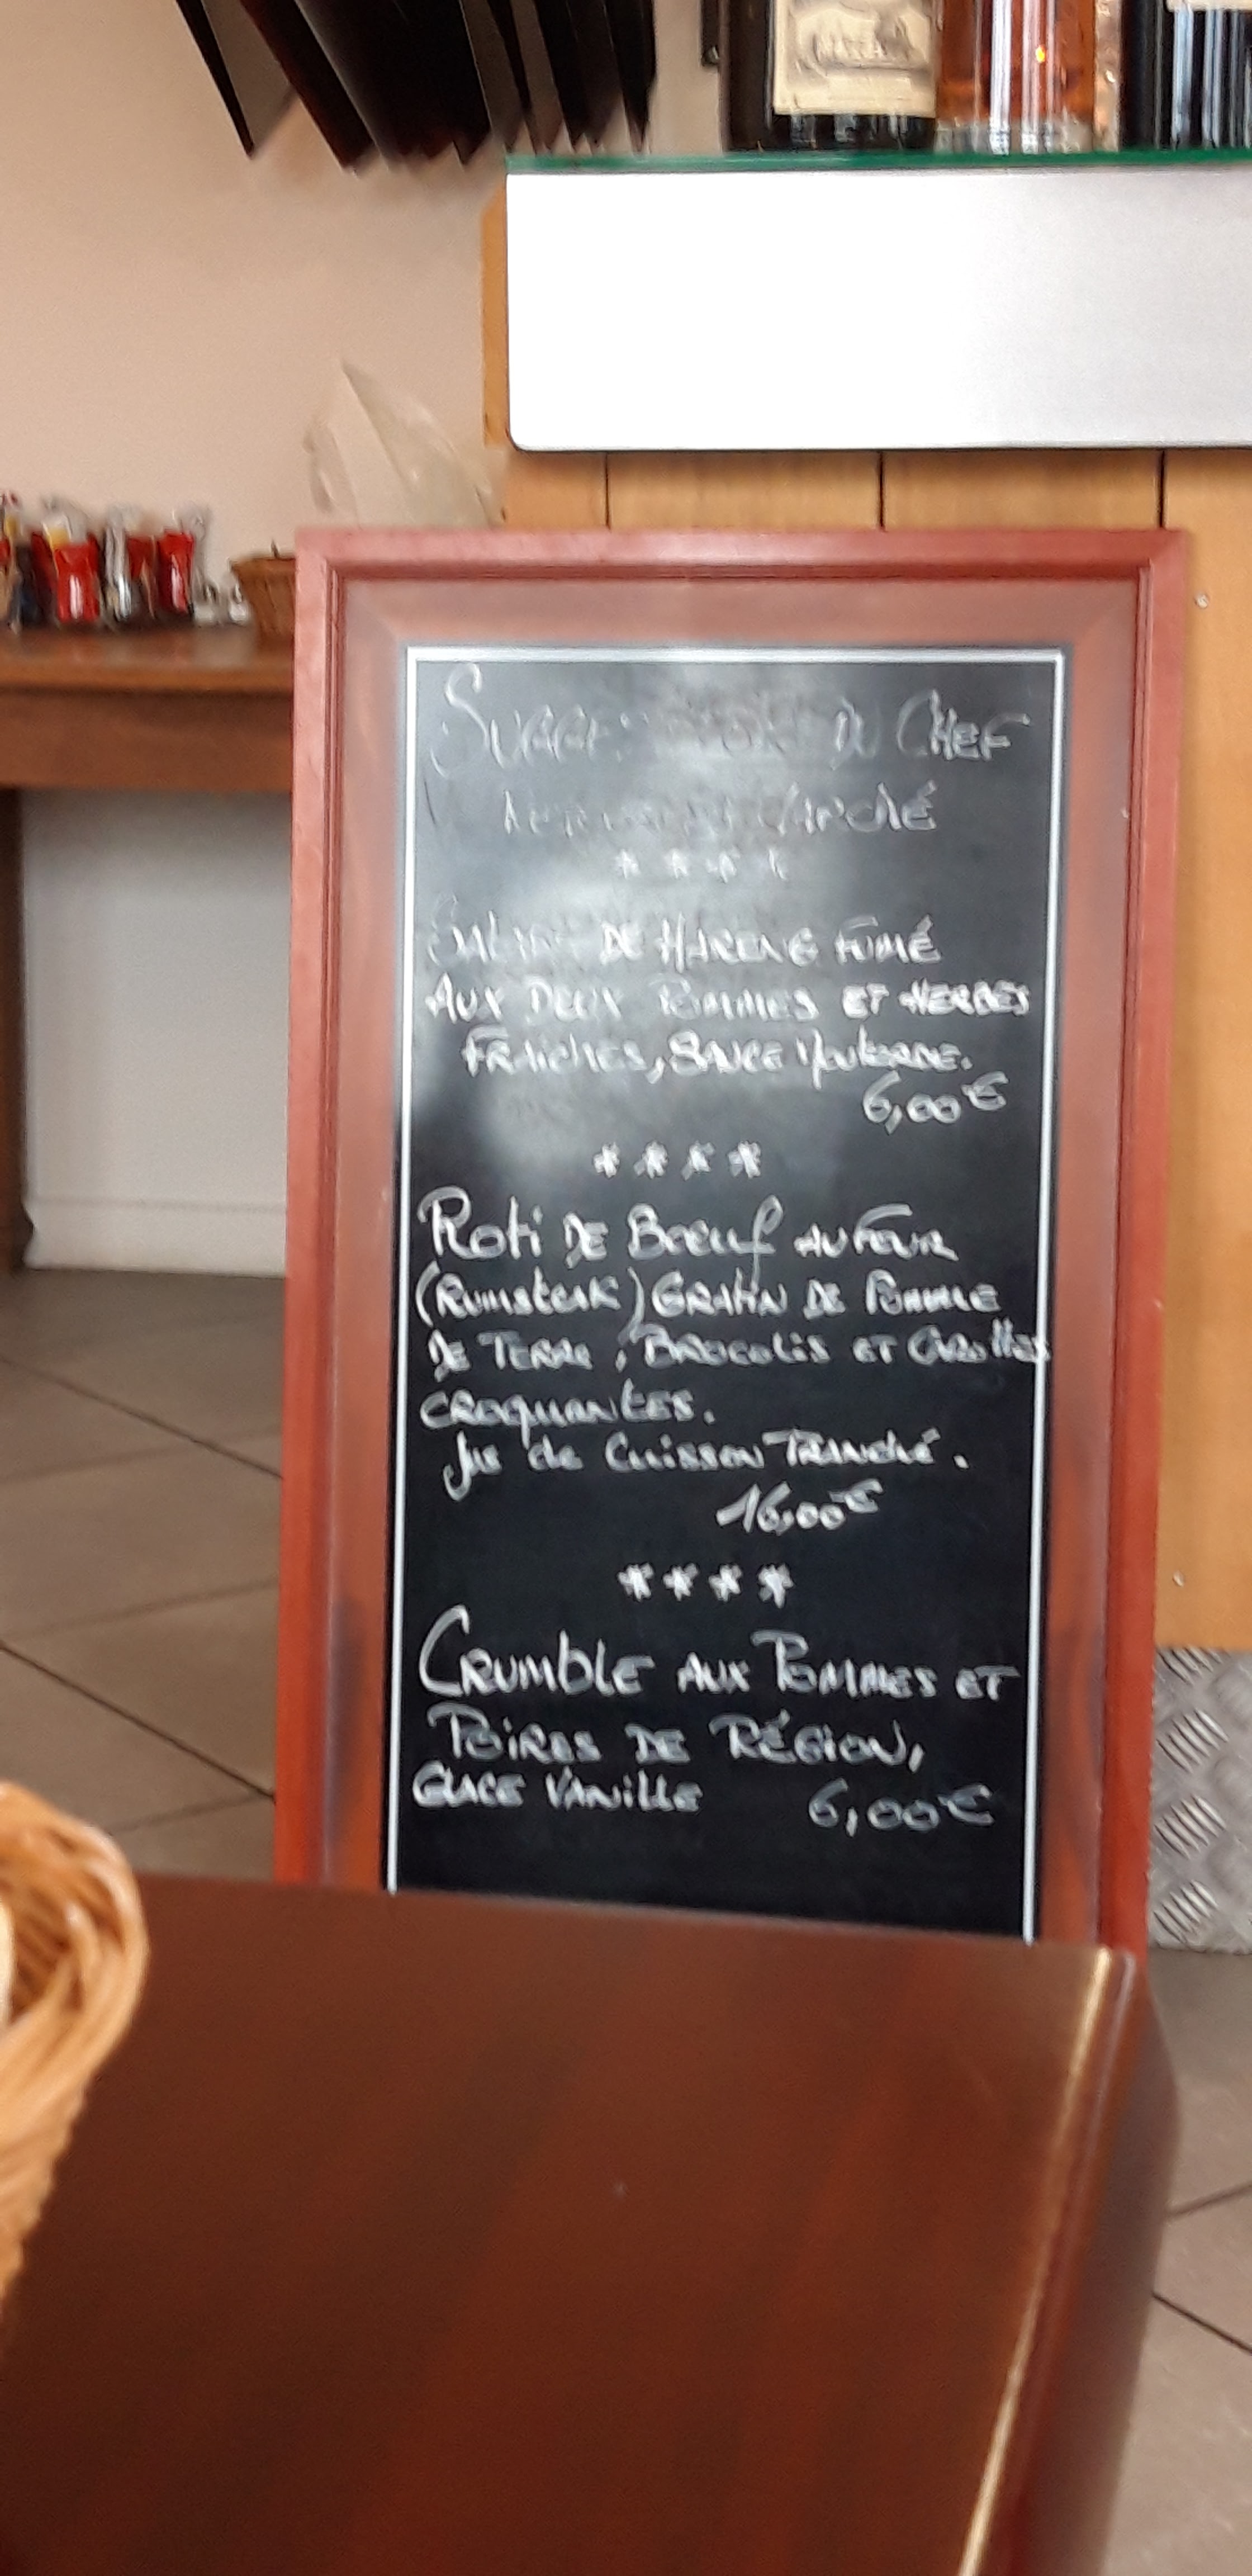 DU CHEF
* * * *
DE HARENG FUMÉ
AUX DEUX POMMES ET HERBES
FRAICHES, SAUCE MOUTARDE.
6,00€
* * * *
Roti DE Boeuf AU FOUR
(Rumsteak) GRATIN DE POMME
DE TERRE, BROCOLIS ET CAROTTES
CROQUANTES.
Jus de Cuisson TRANCHÉ.
16,00€
* * * *
CRUMBLE AUX POMMES ET
POIRES DE RÉGION,
GLACE VANILLE 6,00€